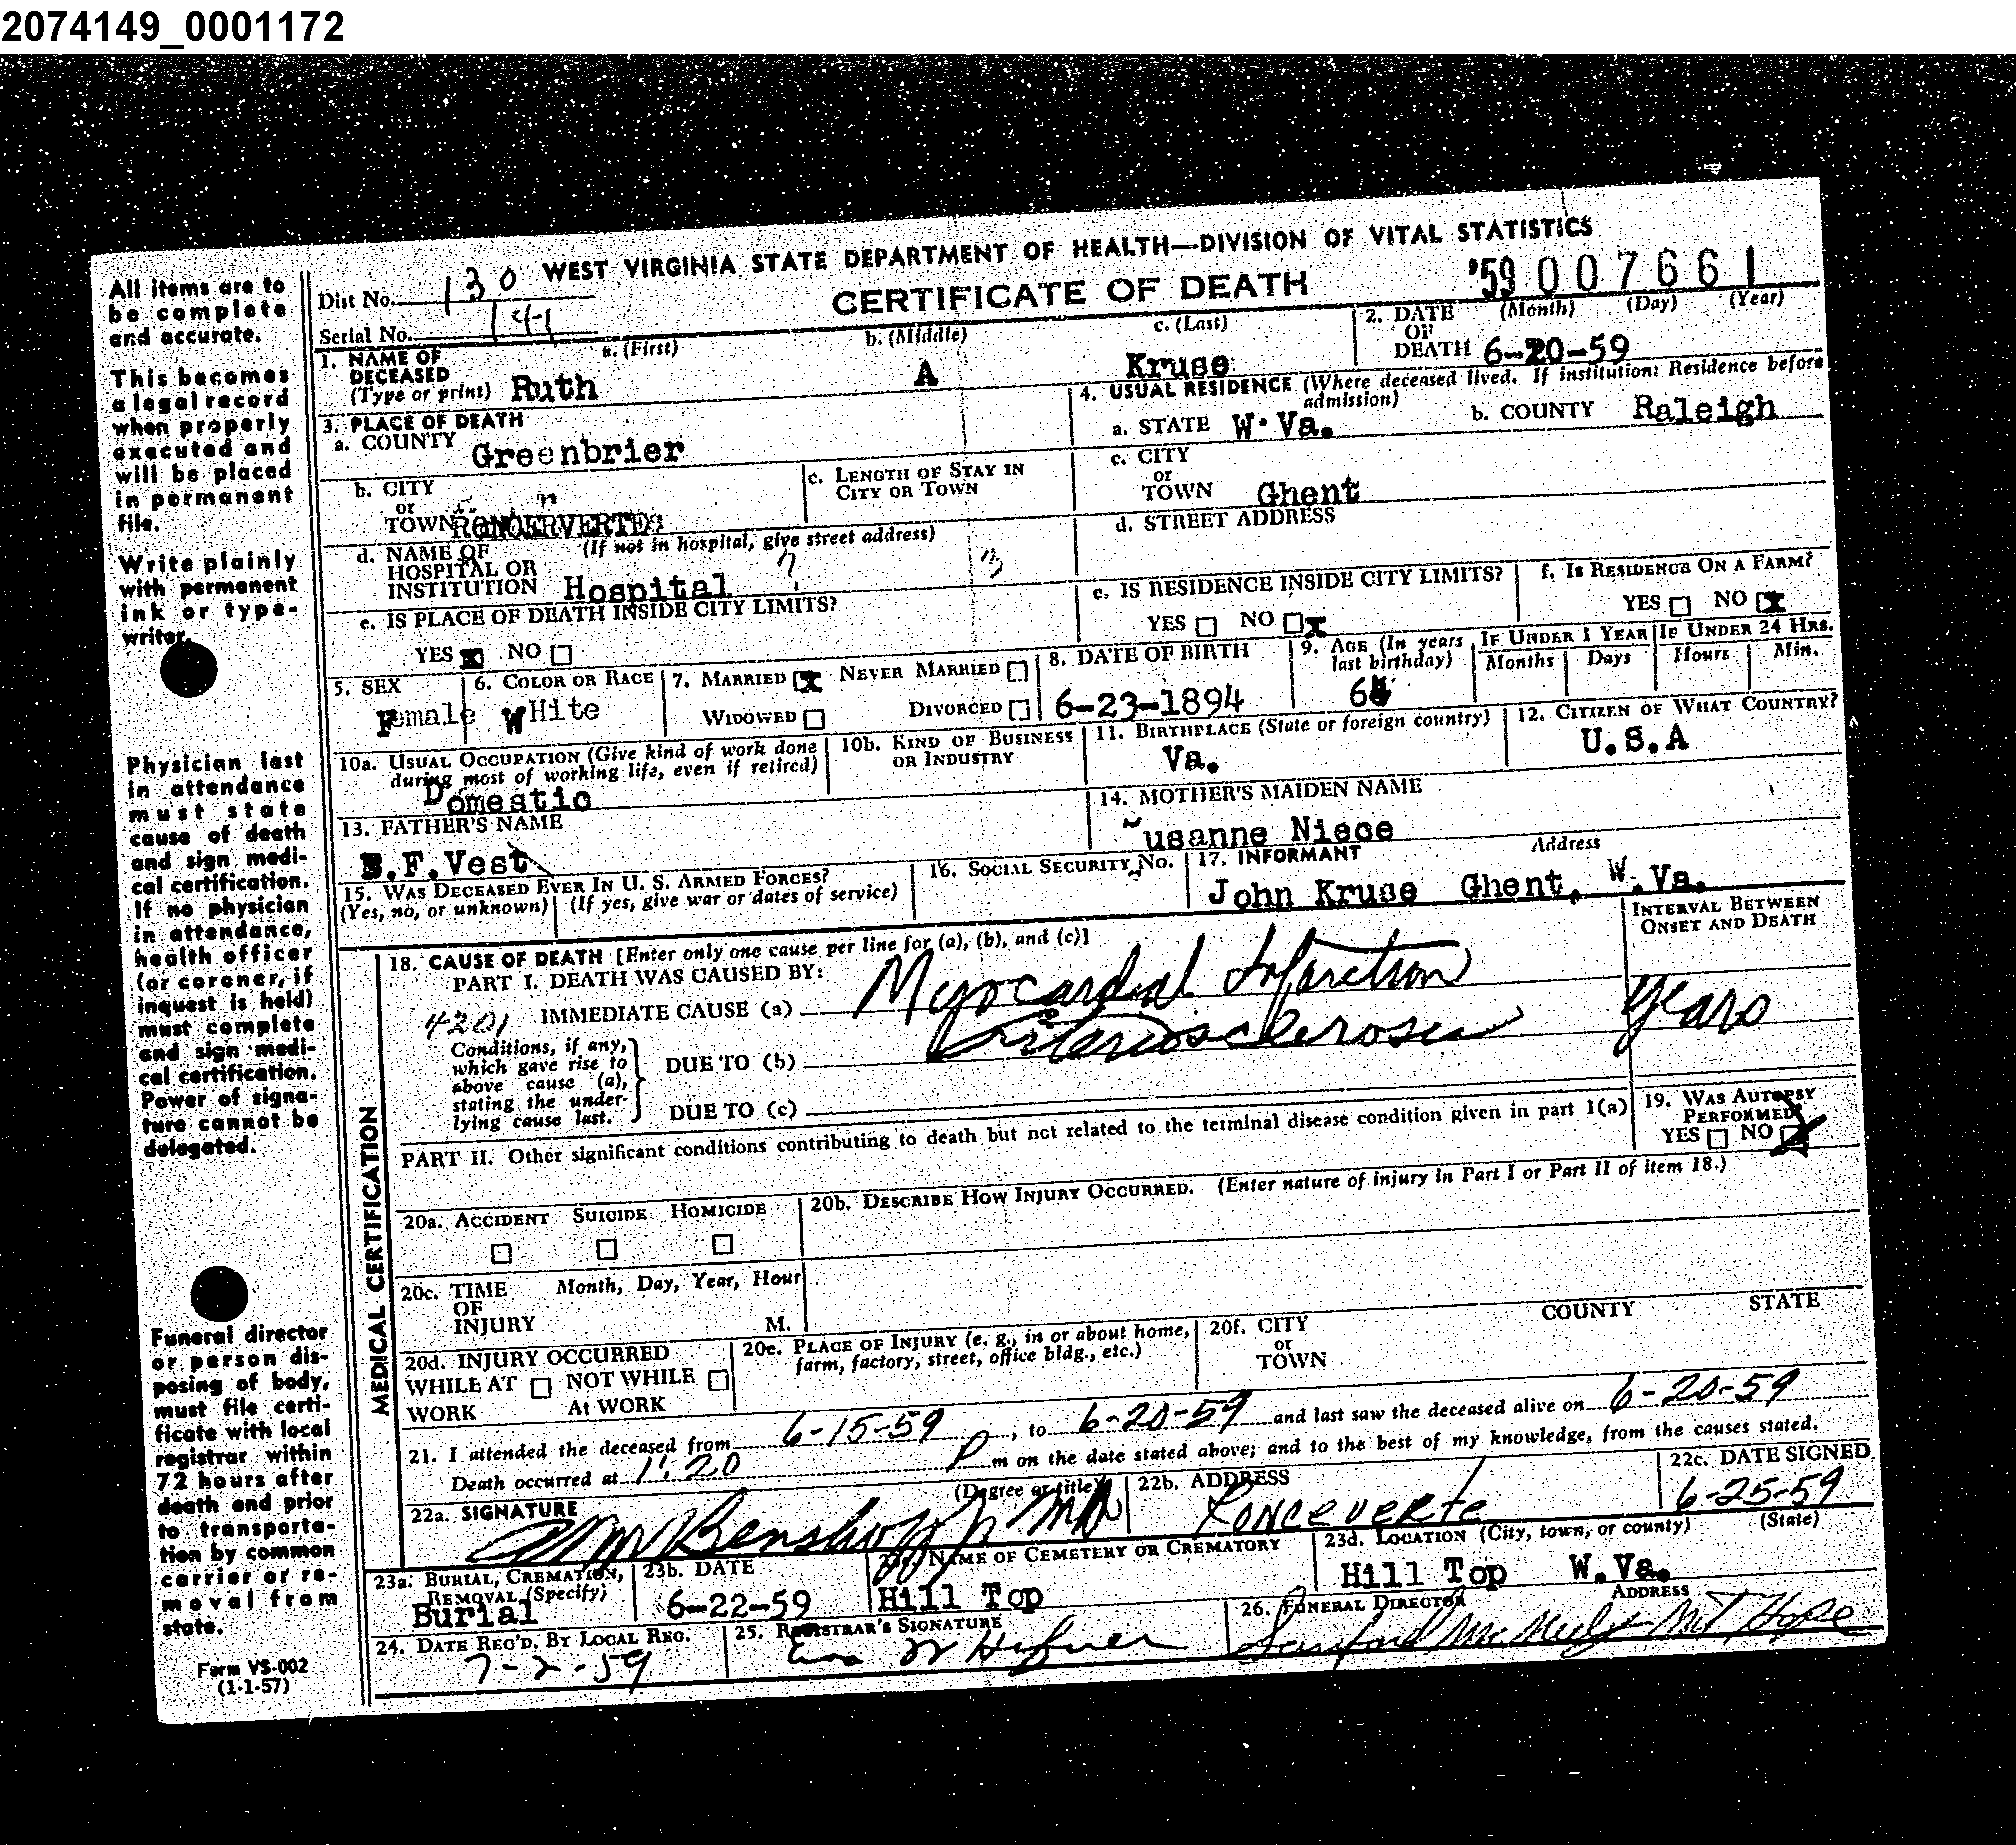 2074149_0001172
WEST VIRGINIA STATE DEPARTMENT OF HEALTH—DIVISION OF VITAL STATISTICS
CERTIFICATE OF DEATH
'59 007661
Dist No. 130
Serial No. 141
1. NAME OF DECEASED (Type or print) a. (First) Ruth b. (Middle) A c. (Last) Kruse
2. DATE OF DEATH (Month) (Day) (Year) 6-20-59
3. PLACE OF DEATH
a. COUNTY Greenbrier
b. CITY or TOWN
c. LENGTH OF STAY IN CITY OR TOWN
d. NAME OF HOSPITAL OR INSTITUTION (If not in hospital, give street address) Hospital
e. IS PLACE OF DEATH INSIDE CITY LIMITS?
YES x NO
4. USUAL RESIDENCE (Where deceased lived. If institution: Residence before admission)
a. STATE W.Va. b. COUNTY Raleigh
c. CITY or TOWN Ghent
d. STREET ADDRESS
e. IS RESIDENCE INSIDE CITY LIMITS?
YES NO x
f. IS RESIDENCE ON A FARM?
YES NO x
5. SEX Female
6. COLOR OR RACE WHite
7. MARRIED x NEVER MARRIED
WIDOWED DIVORCED
8. DATE OF BIRTH 6-23-1894
9. AGE (In years last birthday)
IF UNDER 1 YEAR Months Days
IF UNDER 24 HRS. Hours Min.
10a. USUAL OCCUPATION (Give kind of work done during most of working life, even if retired) Domestic
10b. KIND OF BUSINESS OR INDUSTRY
11. BIRTHPLACE (State or foreign country) Va.
12. CITIZEN OF WHAT COUNTRY? U.S.A
13. FATHER'S NAME
.F.Vest
14. MOTHER'S MAIDEN NAME
usanne Niece
15. WAS DECEASED EVER IN U. S. ARMED FORCES?
(Yes, no, or unknown) (If yes, give war or dates of service)
16. SOCIAL SECURITY NO.
17. INFORMANT Address
John Kruse Ghent, W.Va.
18. CAUSE OF DEATH [Enter only one cause per line for (a), (b), and (c)]
INTERVAL BETWEEN ONSET AND DEATH
PART I. DEATH WAS CAUSED BY:
4201 IMMEDIATE CAUSE (a) Myocardial Infarction
Conditions, if any, which gave rise to above cause (a), stating the underlying cause last.
DUE TO (b) Arteriosclerosis Years
DUE TO (c)
PART II. Other significant conditions contributing to death but not related to the terminal disease condition given in part I(a)
19. WAS AUTOPSY PERFORMED?
YES NO X
20a. ACCIDENT SUICIDE HOMICIDE
20b. DESCRIBE HOW INJURY OCCURRED. (Enter nature of injury in Part I or Part II of item 18.)
20c. TIME OF INJURY Month, Day, Year, Hour M.
20d. INJURY OCCURRED
WHILE AT WORK NOT WHILE At WORK
20e. PLACE OF INJURY (e. g., in or about home, farm, factory, street, office bldg., etc.)
20f. CITY or TOWN COUNTY STATE
21. I attended the deceased from 6-15-59, to 6-20-59 and last saw the deceased alive on 6-20-59
Death occurred at 1:20 P m on the date stated above; and to the best of my knowledge, from the causes stated.
22a. SIGNATURE (Degree or title) Benshoff Jr MD
22b. ADDRESS Ronceverte
22c. DATE SIGNED 6-25-59
23a. BURIAL, CREMATION, REMOVAL (Specify) Burial
23b. DATE 6-22-59
23c. NAME OF CEMETERY OR CREMATORY Hill Top
23d. LOCATION (City, town, or county) (State) Hill Top W.Va.
24. DATE REC'D. BY LOCAL REG. 7-2-59
25. REGISTRAR'S SIGNATURE W Hefner
26. FUNERAL DIRECTOR ADDRESS
Sanford Mt Hope
MEDICAL CERTIFICATION
All items are to
be complete
and accurate.
This becomes
a legal record
when properly
executed and
will be placed
in permanent
file.
Write plainly
with permanent
ink or type-
writer.
Physician last
in attendance
must state
cause of death
and sign medi-
cal certification.
If no physician
in attendance,
health officer
(or coroner, if
inquest is held)
must complete
and sign medi-
cal certification.
Power of signa-
ture cannot be
delegated.
Funeral director
or person dis-
posing of body,
must file certi-
ficate with local
registrar within
72 hours after
death and prior
to transporta-
tion by common
carrier or re-
moval from
state.
Form VS-002
(1-1-57)